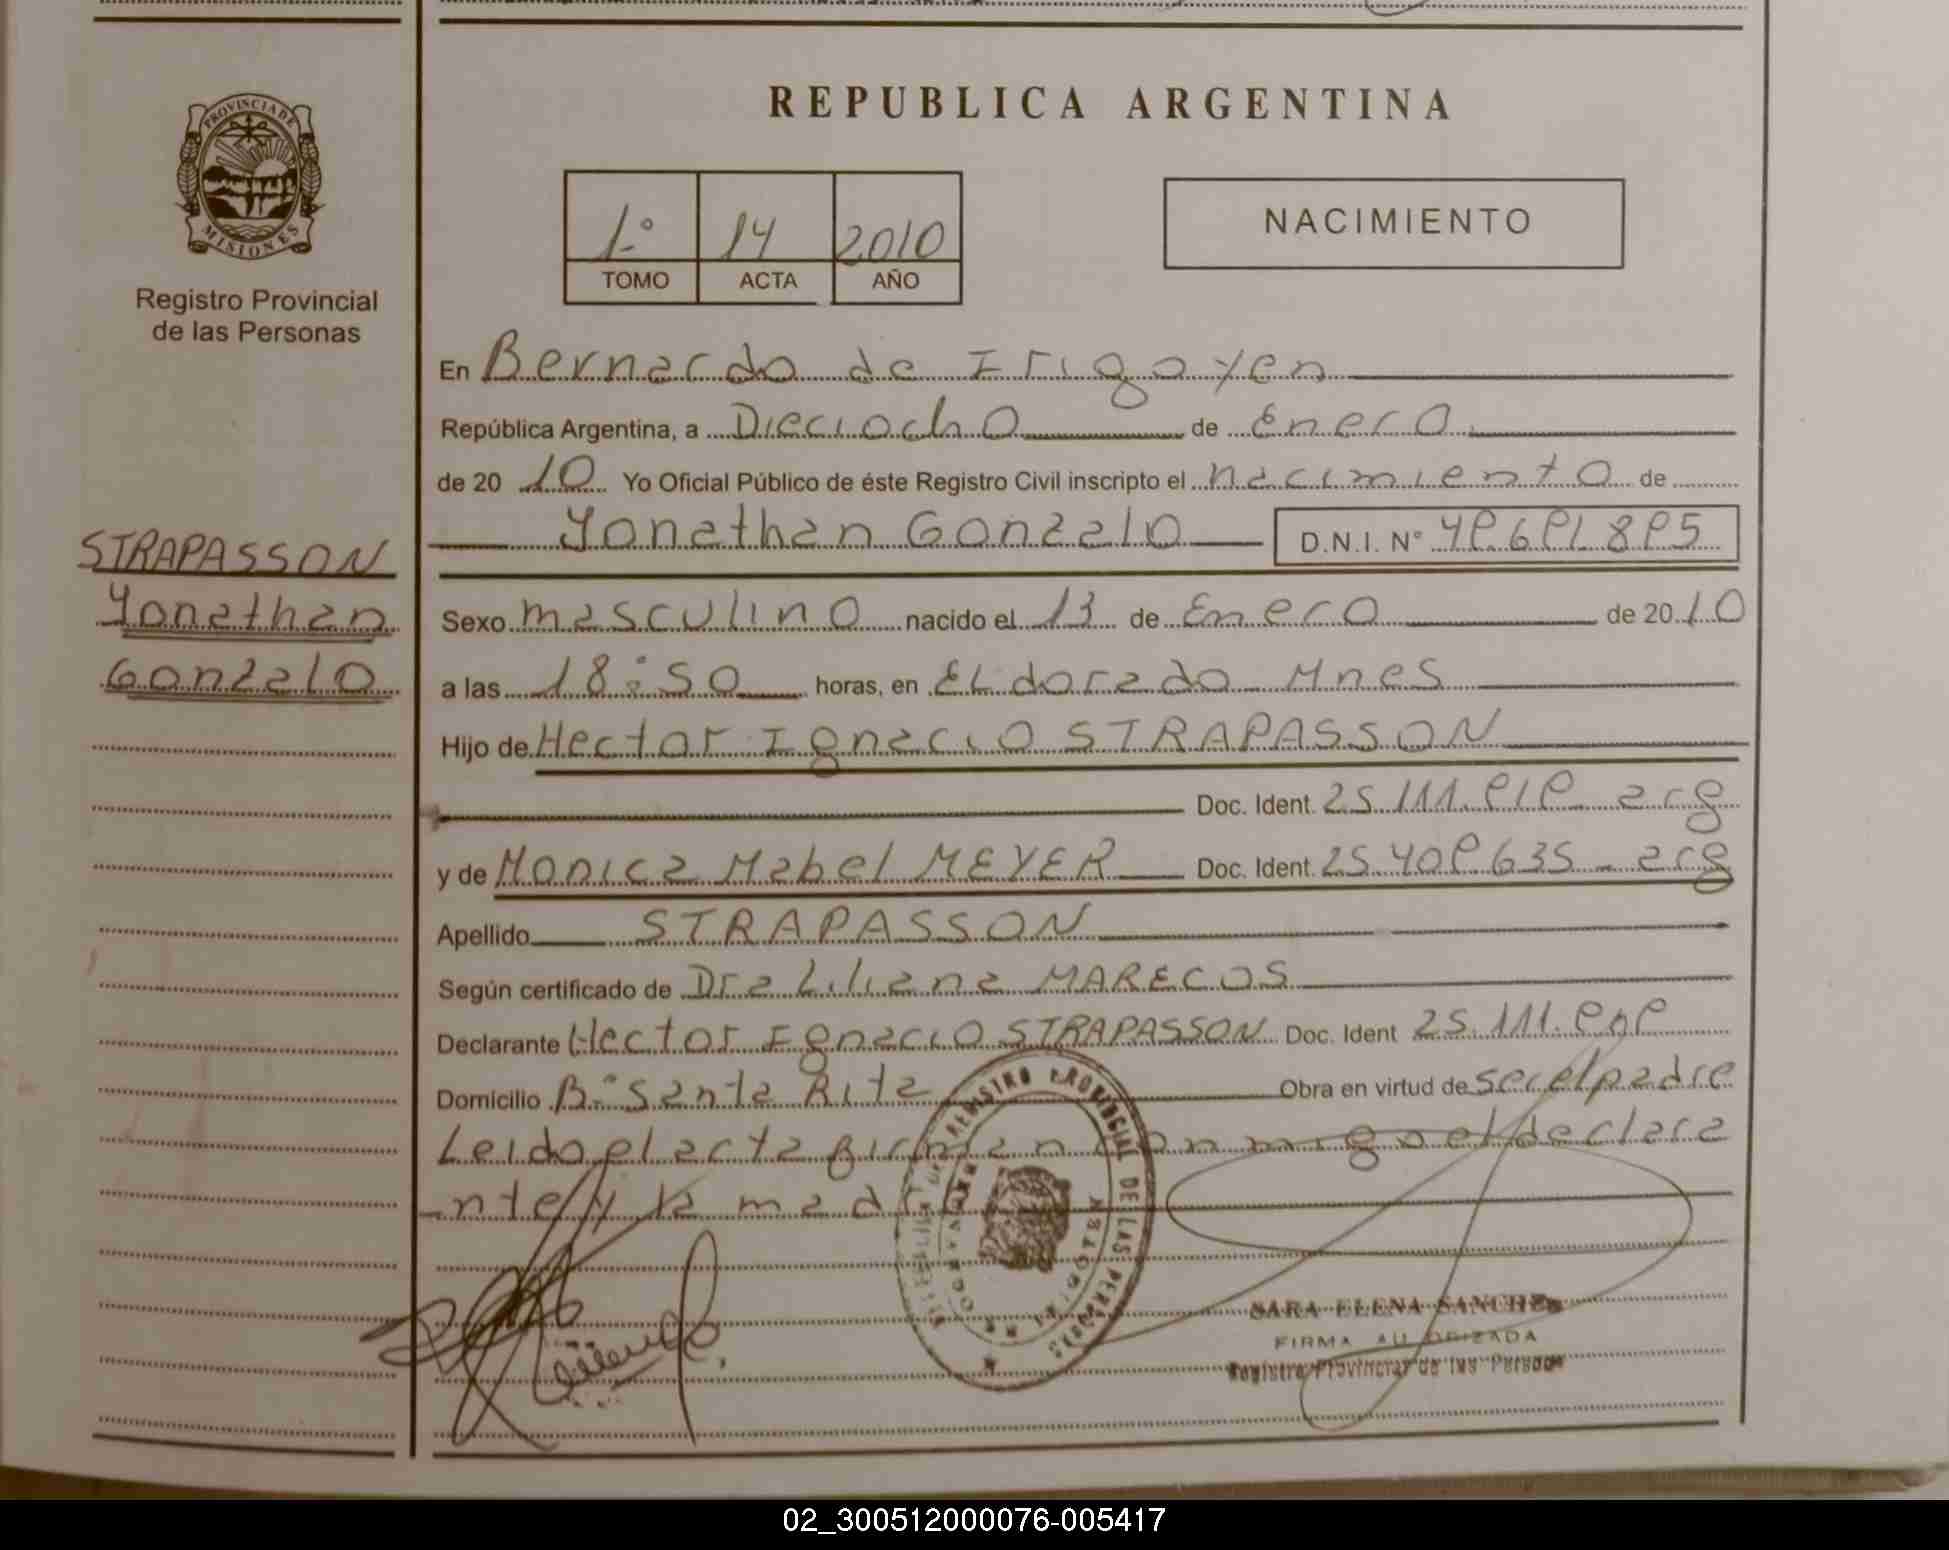 REPUBLICA ARGENTINA
PROVINCIA DE
MISIONES
Registro Provincial
de las Personas
1º 14 2010
TOMO ACTA AÑO
NACIMIENTO
En Bernardo de Irigoyen
República Argentina, a Dieciocho de Enero
de 2010 Yo Oficial Público de éste Registro Civil inscripto el nacimiento de
Yonathan Gonzalo D.N.I. Nº
STRAPASSON
Yonathan
Gonzalo
Sexo masculino nacido el 13 de Enero de 2010
a las 18:50 horas, en ELdorado Mnes
Hijo de Hector Ignacio STRAPASSON
Doc. Ident. 25.111.919 arg
y de Monica Mabel MEYER Doc. Ident. 25.409.635 - arg
Apellido STRAPASSON
Según certificado de Dra Liliana MARECOS
Declarante Hector Ignacio STRAPASSON Doc. Ident 25.111.
Domicilio Bº Santa Rita Obra en virtud de ser el padre
Leido el acta firman conmigo el declara
nte y la madre
REGISTRO PROVINCIAL DE LAS PERSONAS
SARA ELENA SANCHEZ
FIRMA AUTORIZADA
Registro Provincial de las Personas
02_300512000076-005417